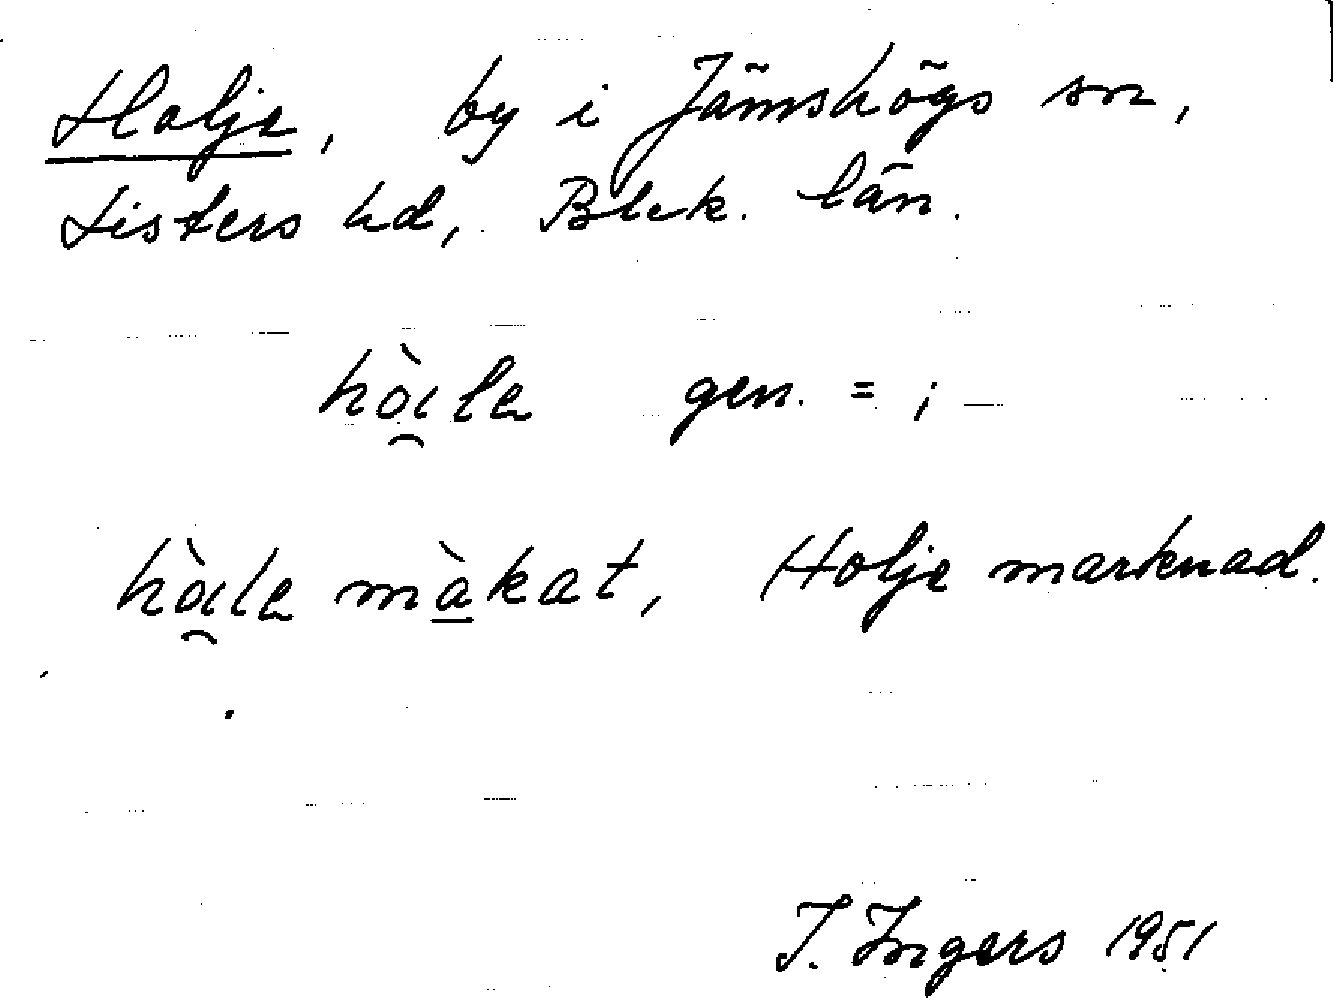 Holje, by i Jämshögs sn,
Listers hd, Blek. län.
hò̯ılə gen. = ;
hò̯ılə mà̱kat, Holje marknad.
I. Ingers 1951